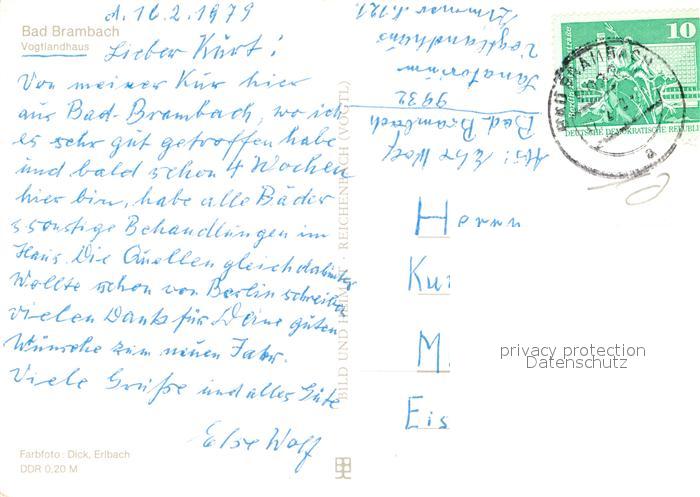 Bad Brambach
Vogtlandhaus
d. 16.2.1979
Lieber Kurt!
Von meiner Kur hier
aus Bad-Brambach, wo ich
es sehr gut getroffen habe
und bald schon 4 Wochen
hier bin, habe alle Bäder
u sonstige Behandlungen im
Haus. Die Quellen gleich dahinter
Wollte schon von Berlin schreiben
vielen Dank für Deine guten
Wünsche zum neuen Jahr.
Viele Grüße und alles Gute
Else Wolf
Farbfoto: Dick, Erlbach
DDR 0,20 M
BILD UND HEIMAT · REICHENBACH (VOGTL)
Abs: Else Wolf
Bad Brambach
9932
Sanatorium
Vogtlandhaus
Zimmer
10
DEUTSCHE DEMOKRATISCHE REPUBLIK
BAD BRAMBACH
a
Herrn
Ku
M
Eis
privacy protection
Datenschutz